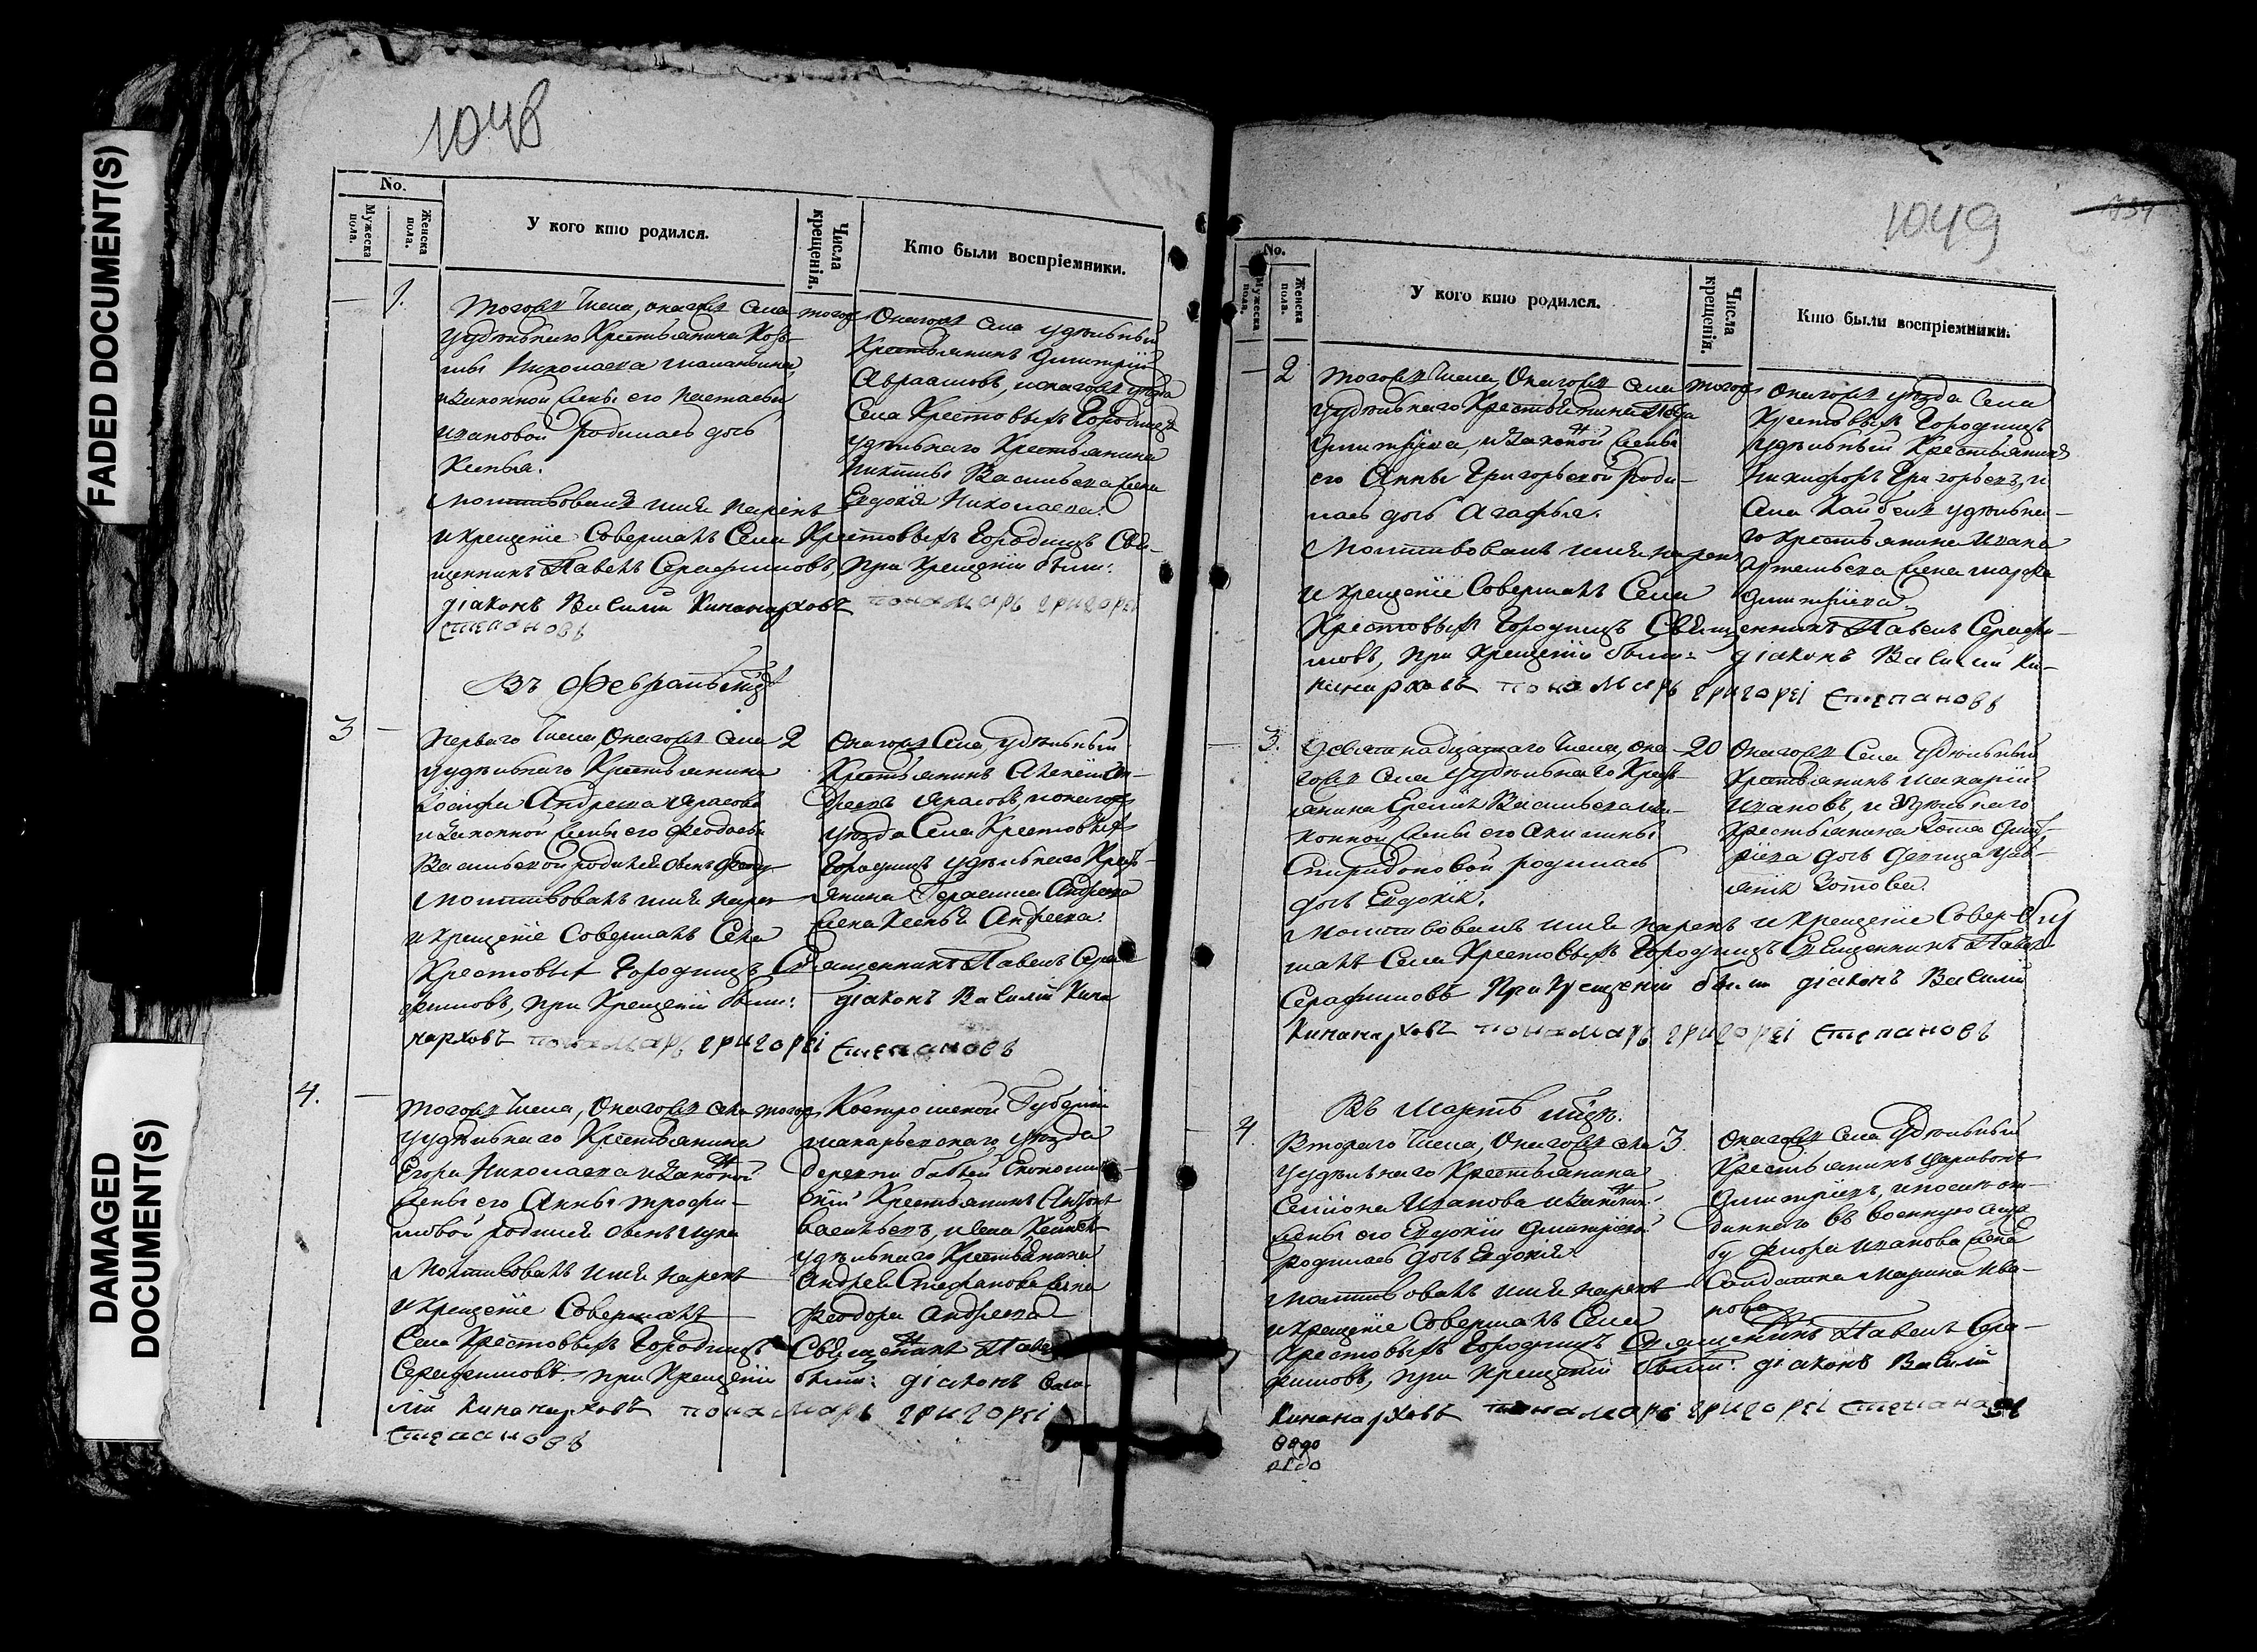 FADED DOCUMENT(S)
DAMAGED
DOCUMENT(S)
1048
No.
Мужеска пола.
Женска пола.
У кого кто родился.
Числа крещенія.
Кто были воспріемники.
1.
Тогожъ числа, онагожъ села
удѣльнаго крестьянина Козь-
мы Николаева
и законной жены его Настасьи
Ивановой родилась дочь
Ксенья.
Молитвовалъ имя нарекъ
и крещеніе совершалъ села Крестовыхъ Городищъ Свя-
щенникъ Павелъ Серафимовъ при крещеніи были:
діаконъ Василій Кинарховъ пономарь григореі
степановъ
тогожъ
Онагожъ села удѣльный
крестьянинъ Дмитрій
Авраамовъ, и онагожъ уѣзда
села Крестовыхъ Городищъ
удѣльнаго крестьянина
Никиты Васильева жена
Евдокія Николаева.
Въ Февралѣ мцѣ
3
Перваго числа, онагожъ села
удѣльнаго крестьянина
Іосифа Андреева
и законной жены его Феодосьи
Васильевой родился сынъ
Молитвовалъ имя нарекъ
и крещеніе совершалъ села
Крестовыхъ Городищъ Священникъ Павелъ Сера-
фимовъ, при крещеніи были: діаконъ Василій Кина
нарховъ пономарь григореі степановъ
2
Онагожъ села, удѣльный
крестьянинъ Алексѣй Ан-
дреевъ, и онагожъ
уѣзда села Крестовыхъ
Городищъ удѣльнаго крест-
янина Герасима Андреева
жена Ксенья Андреева.
4.
Тогожъ числа, онагожъ села
удѣльнаго крестьянина
Егора Николаева и законной
жены его Анны Трофи-
мовой родился сынъ Лука
Молитвовалъ имя нарекъ
и крещеніе совершалъ
села Крестовыхъ Городищъ Священникъ Павелъ
Серафимовъ при крещеніи были: діаконъ Васи-
лій Кинанарховъ пономарь григореі
степановъ
тогожъ
Костромской Губерніи
Макарьевскаго уѣзда
деревни Экономиче-
скій крестьянинъ Антонъ
Васильевъ, и села
удѣльнаго крестьянина
Андрея Стефанова жена
Феодора Андреева
1049
734
No.
Мужеска пола.
Женска пола.
У кого кто родился.
Числа крещенія.
Кто были воспріемники.
2
Тогожъ числа, онагожъ села
удѣльнаго крестьянина
Дмитріева, и законной жены
его Анны Григорьевой роди-
лась дочь Агафья.
Молитвовалъ имя нарекъ
и крещеніе совершалъ села
Крестовыхъ Городищъ Священникъ Павелъ Серафи-
мовъ, при крещеніи были: діаконъ Василій Ки-
нанарховъ пономарь григореі степановъ
тогожъ
Онагожъ уѣзда села
Крестовыхъ Городищъ
удѣльный крестьянинъ
Никифоръ Григорьевъ, и
села Кайбелъ удѣльна-
го крестьянина Ивана
Артемьева жена Марфа
Дмитріева.
3.
Девятнадцатаго числа, она-
гожъ села удѣльнаго крест-
янина Васильева и за-
конной жены его Акилины
Спиридоновой родилась
дочь Евдокія.
Молитвовалъ имя нарекъ и крещеніе совер-
шалъ села Крестовыхъ Городищъ Священникъ Павелъ
Серафимовъ при крещеніи были діаконъ Василій
Кинанарховъ пономарь григореі степановъ
20
Онагожъ села удѣльный
крестьянинъ Макарій
Ивановъ, и удѣльнаго
крестьянина Зота Дмит-
ріева дочь девица
Зотова.
Въ Мартѣ мцѣ.
4.
Втораго числа, онагожъ села
удѣльнаго крестьянина
Семіона Иванова и законной
жены его Евдокіи Дмитріевой
родилась дочь Евдокія.
Молитвовалъ имя нарекъ
и крещеніе совершалъ села
Крестовыхъ Городищъ Священникъ Павелъ Сера-
фимовъ, при крещеніи были: діаконъ Василій
Кинанарховъ пономарь григореі степановъ
3.
Онагожъ села удѣльный
крестьянинъ
Дмитріевъ, и от-
даннаго въ военную служ
бу Иванова жена
солдатка Марина Ива-
нова